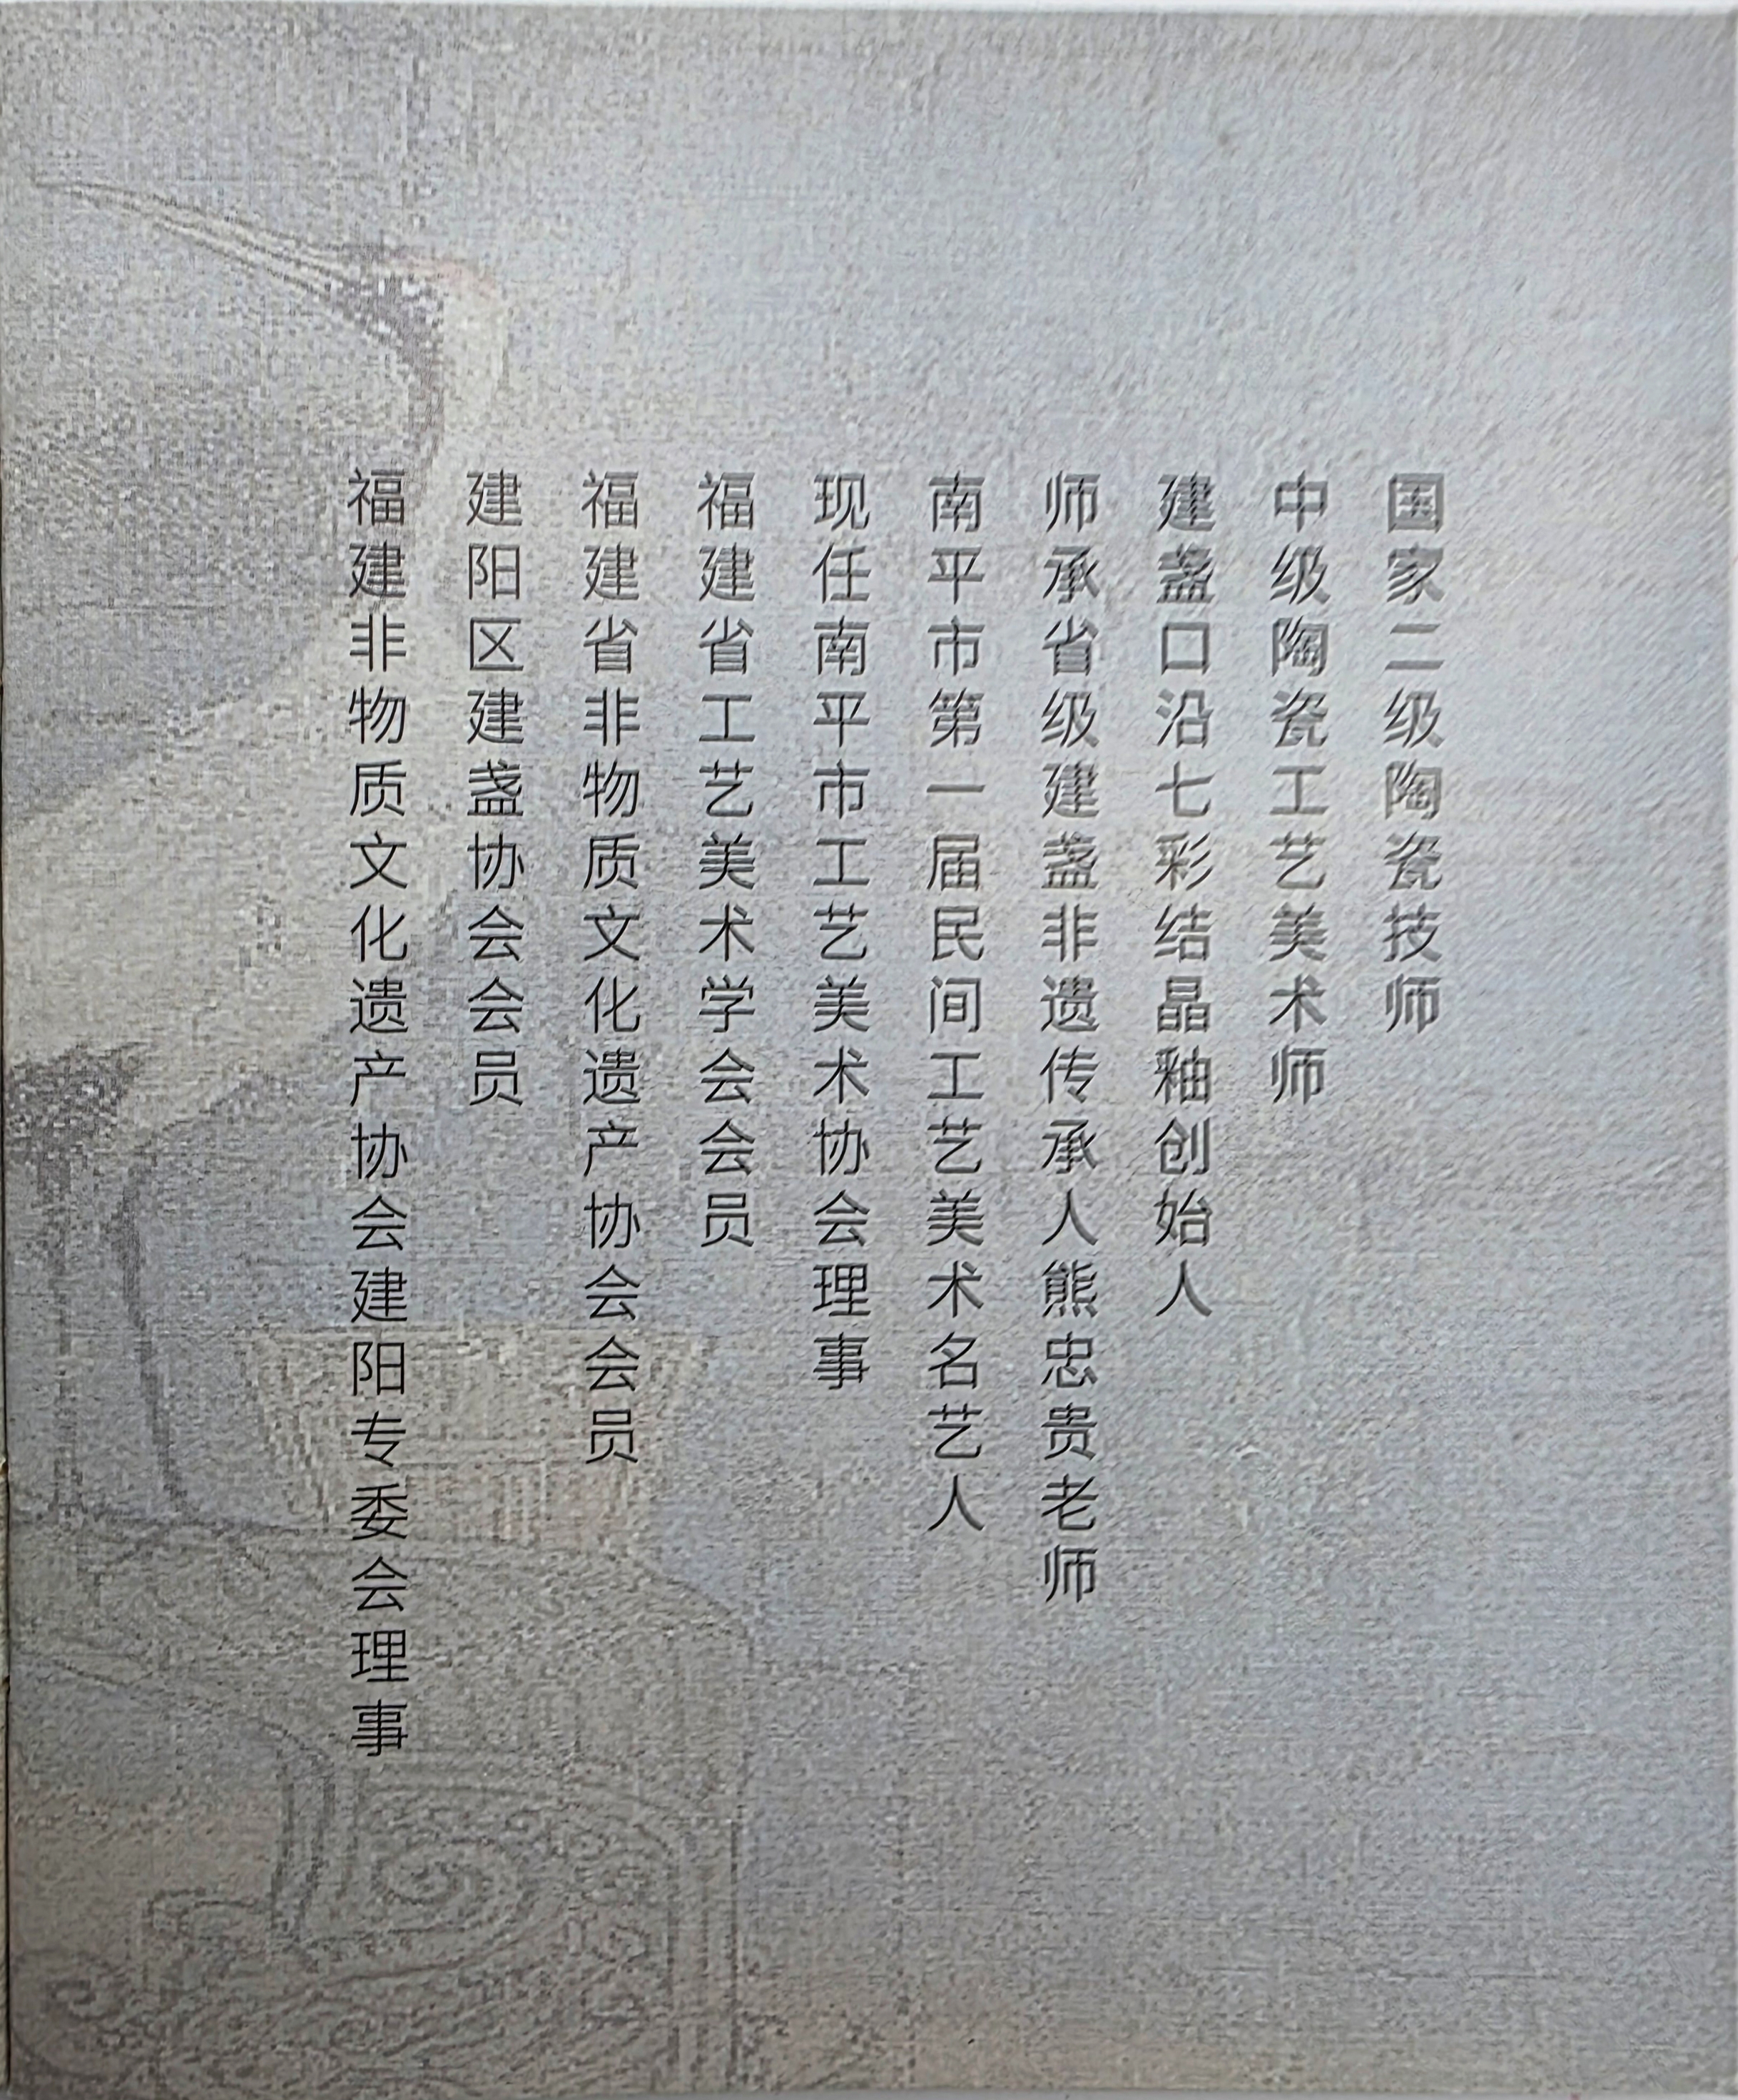 国家二级陶瓷技师
中级陶瓷工艺美术师
建盏口沿七彩结晶釉创始人
师承省级建盏非遗传承人熊忠贵老师
南平市第一届民间工艺美术名艺人
现任南平市工艺美术协会理事
福建省工艺美术学会会员
福建省非物质文化遗产协会会员
建阳区建盏协会会员
福建非物质文化遗产协会建阳专委会理事